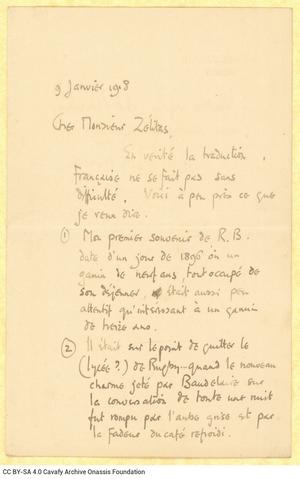 9 Janvier 1918
Cher Monsieur Zélitas,
En vérité la traduction
Française ne se fait pas sans
difficulté. Voici à peu près ce que
je veux dire.
① Mon premier souvenir de R. B.
date d'un jour de 1896 où un
gamin de neuf ans, tout occupé de
son déjeuner, était aussi peu
attentif qu'intéressant à un gamin
de treize ans.
② Il était sur le point de quitter le
(lycée?) de Rugby... quand le nouveau
charme jeté par Baudelaire sur
la conversation de toute une nuit
fut rompu par l'aube grise et par
la fadeur du café refroidi.
CC BY-SA 4.0 Cavafy Archive Onassis Foundation